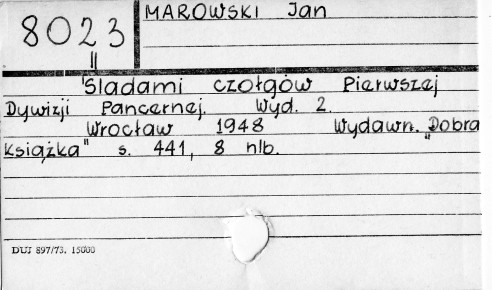 8023
II
MAROWSKI Jan
"Śladami czołgów Pierwszej
Dywizji Pancernej. Wyd. 2.
Wrocław 1948 Wydawn. „Dobra
Książka" s. 441, 8 nlb.
DUJ 897/73. 15000